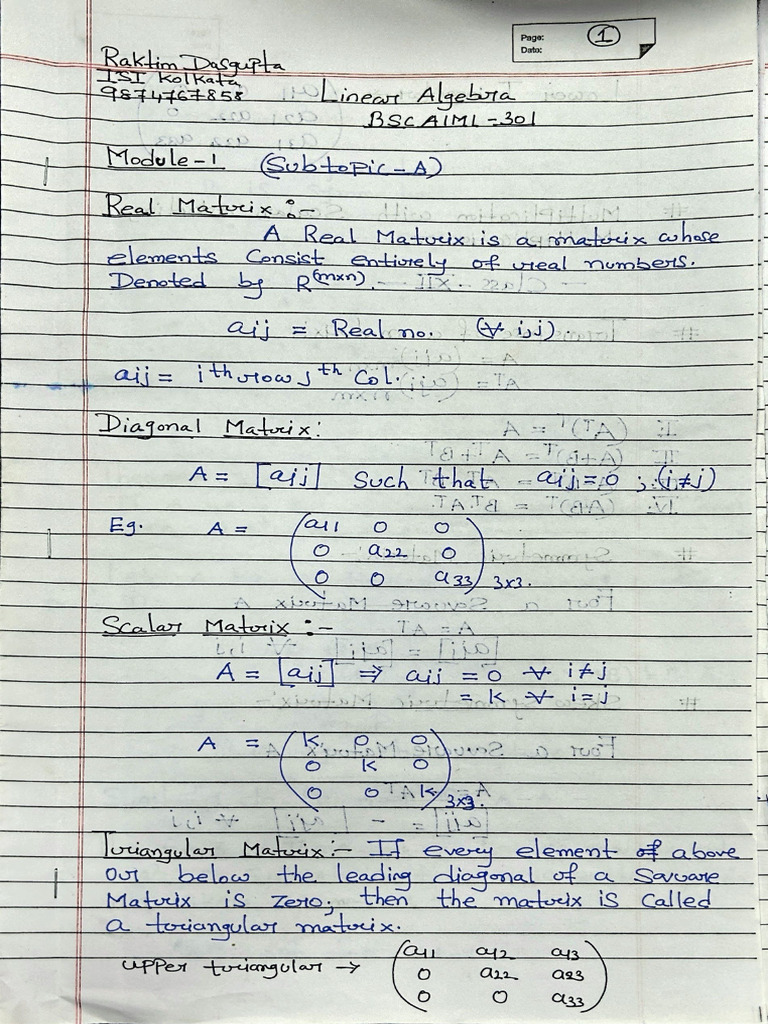 Page: 1
Date:
Raktim Dasgupta
ISI Kolkata
9874767858
Linear Algebra
BSCAIML-301
Module-1 (Subtopic-A)
Real Matrix :-
A Real Matrix is a matrix whose
elements Consist entirely of real numbers.
Denoted by R^(m×n).
aij = Real no. (∀ i,j).
aij = ith row jth Col.
Diagonal Matrix:
A = [aij] Such that aij=0 ; (i≠j)
Eg. A = (a11 0 0
0 a22 0
0 0 a33) 3×3.
Scalar Matrix :-
A = [aij] ⇒ aij = 0 ∀ i≠j
= K ∀ i=j
A = (K 0 0
0 K 0
0 0 K) 3×3.
Triangular Matrix:- If every element of above
or below the leading diagonal of a Square
Matrix is Zero; then the matrix is called
a triangular matrix.
upper triangular → (a11 a12 a13
0 a22 a23
0 0 a33)